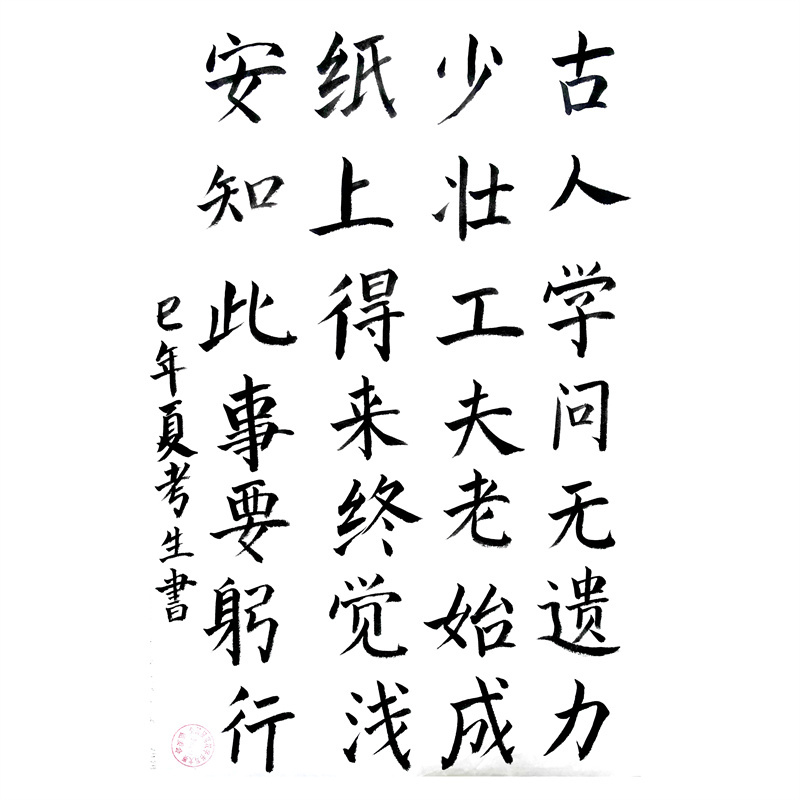 古人学问无遗力
少壮工夫老始成
纸上得来终觉浅
安知此事要躬行
巳年夏考生書